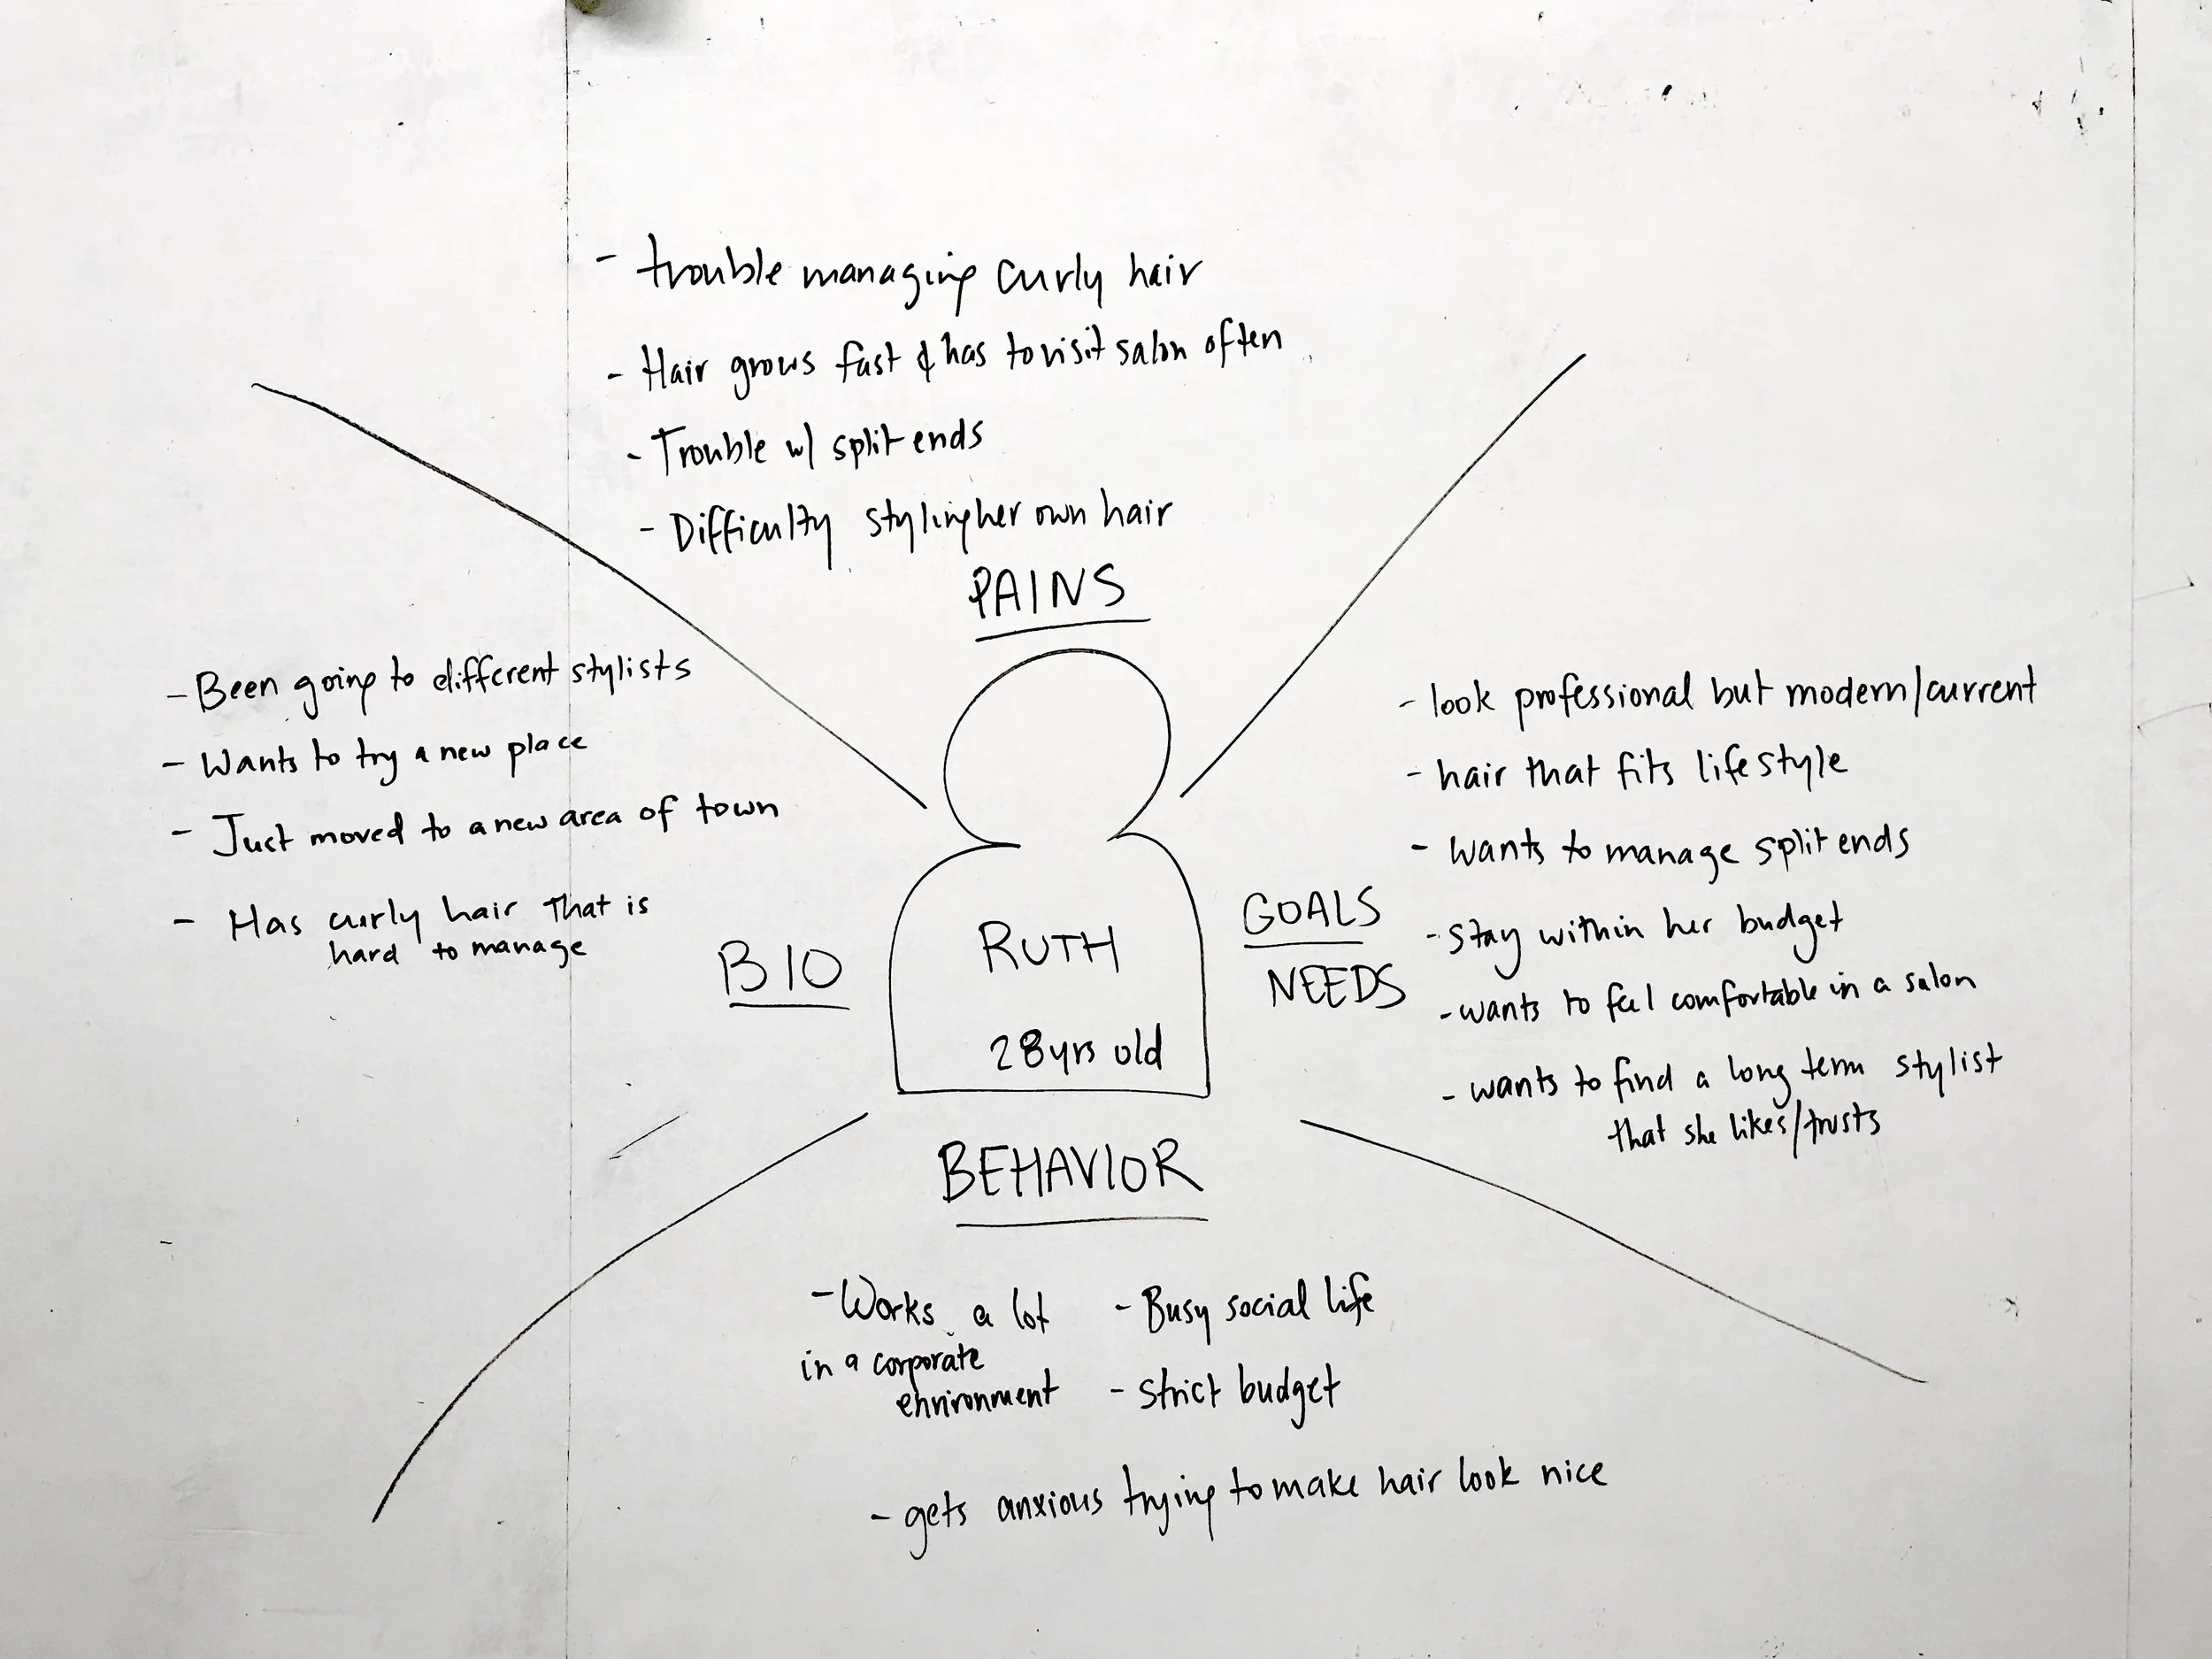 - trouble managing curly hair
- Hair grows fast & has to visit salon often
- Trouble w/ split ends
- Difficulty styling her own hair
PAINS
- Been going to different stylists
- Wants to try a new place
- Just moved to a new area of town
- Has curly hair that is
hard to manage
BIO
RUTH
28yrs old
GOALS
NEEDS
- look professional but modern/current
- hair that fits lifestyle
- wants to manage split ends
- stay within her budget
- wants to feel comfortable in a salon
- wants to find a long term stylist
that she likes/trusts
BEHAVIOR
- Works a lot
in a corporate
environment
- Busy social life
- strict budget
- gets anxious trying to make hair look nice